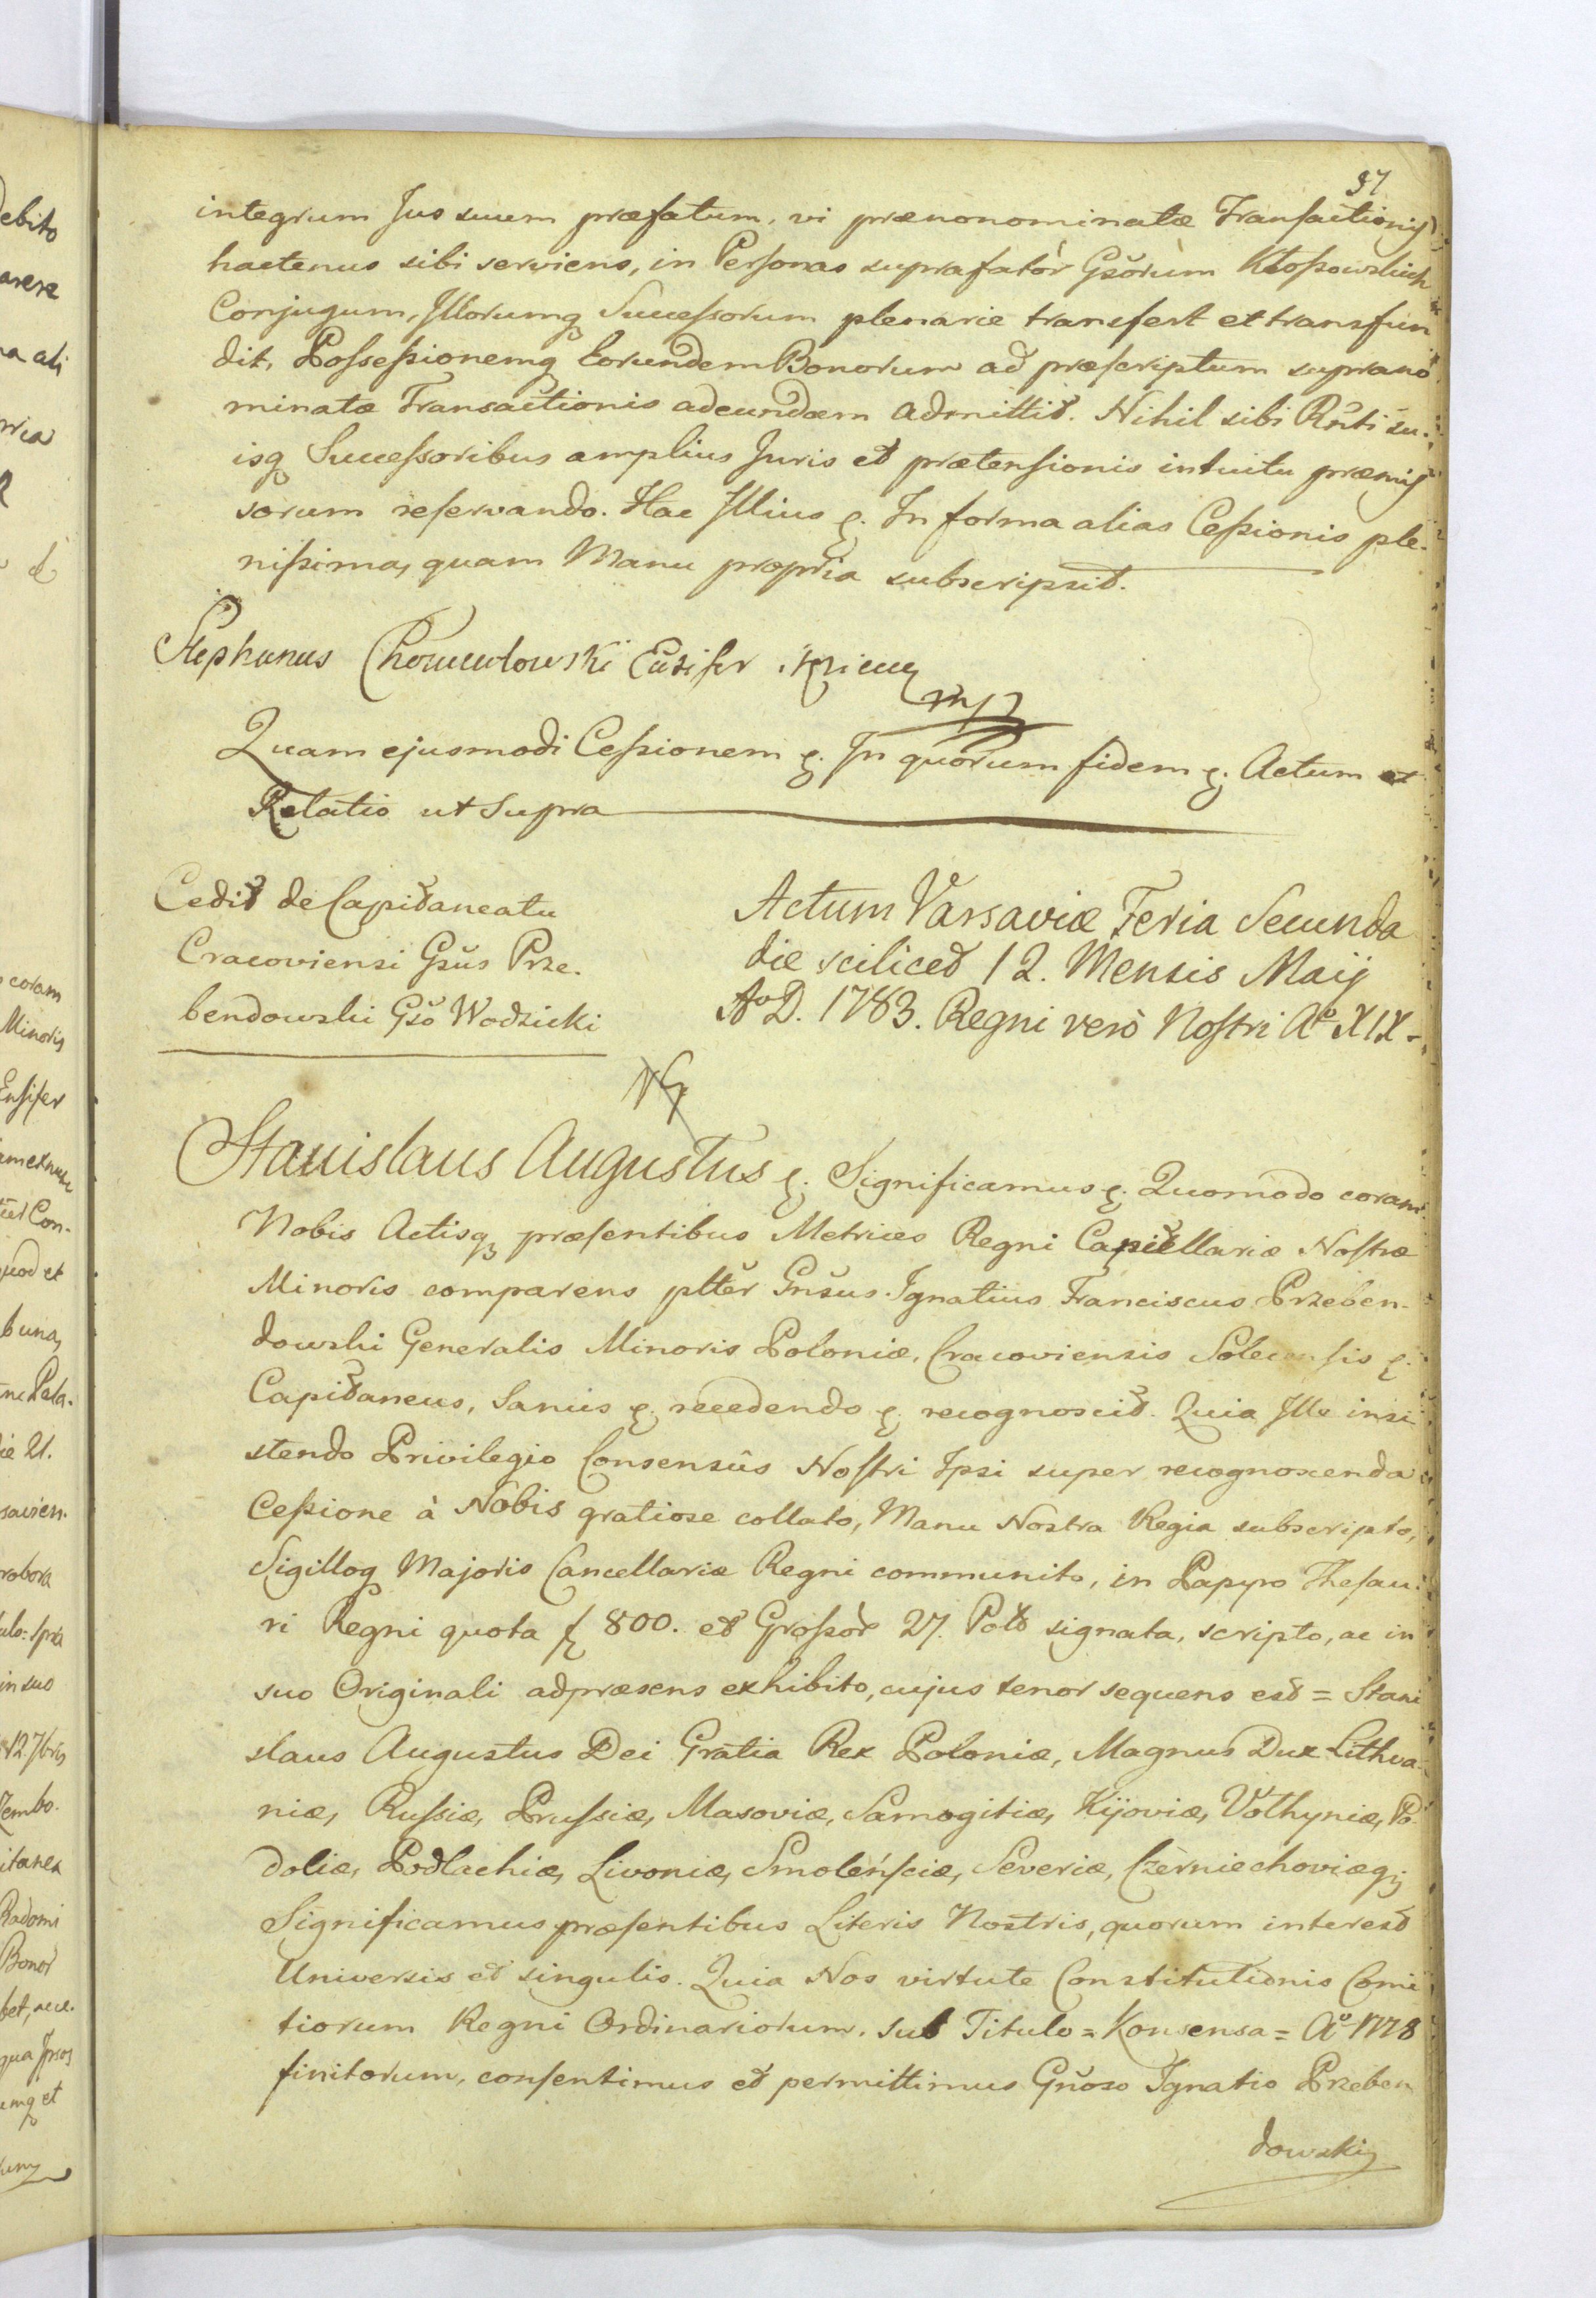 97
integrum Jus suum præfatum, vi prænonominatæ Transactionis
hactenus sibi serviens, in Personas suprafator Gsorum Kłossowskich
Conjugum, Illorumq Successorum plenarie transfert et transfun
dit, Possessionemq Eorundem Bonorum ad præscriptum suprano
minatæ Transactionis adeundam admittit. Nihil sibi Rnti su-
isq Successoribus amplius Juris et prætensionis intuitu præmis
sorum reservando. Hac Illius &. In forma alias Cessionis ple-
nissima, quam Manu propria subscripsit.
Stephanus Chomentowski Ensifer
mp
Quam ejusmodi Cessionem &. In quorum fidem &. Actum et
Relatio ut Supra
Cedit de Capitaneatu
Cracoviensi Gsus Prze-
bendowski Gso Wodzicki
Actum Varsaviæ Feria Secunda
die scilicet 12. Mensis Maij
Ao D. 1783. Regni verò Nostri Ao XIX-
Stanislaus Augustus &. Significamus &. Quomodo coram
Nobis Actisq præsentibus Metrices Regni Cancellariæ Nostræ
Minoris comparens pltter Gnsus Ignatius Franciscus Przeben-
dowski Generalis Minoris Poloniæ, Cracoviensis Solecensis &.
Capitaneus, Sanus &. recedendo &. recognoscit. Quia Ille insi
stendo Privilegio Consensûs Nostri Ipsi super recognoscenda
Cessione à Nobis gratiose collato, Manu Nostra Regia subscripto,
Sigilloq Majoris Cancellariæ Regni communito, in Papyro Thesau-
ri Regni quota f 800. et Grossor 27. Polt signata, scripto, ac in
suo Originali adpræsens exhibito, cujus tenor sequens est = Stani
slaus Augustus Dei Gratia Rex Poloniæ, Magnus Dux Lithva-
niæ, Russiæ, Prussiæ, Masoviæ, Samogitiæ, Kijoviæ, Volhyniæ, Po-
doliæ, Podlachiæ, Livoniæ, Smoleńsciæ, Severiæ, Czerniechoviæq;
Significamus præsentibus Literis Nostris, quorum interest
Universis et singulis. Quia Nos virtute Constitutionis Comi
tiorum Regni Ordinariorum, sub Titulo = Konsensa = Ao 1778
finitorum, consentimus et permittimus Gnoso Ignatio Przeben
dowski